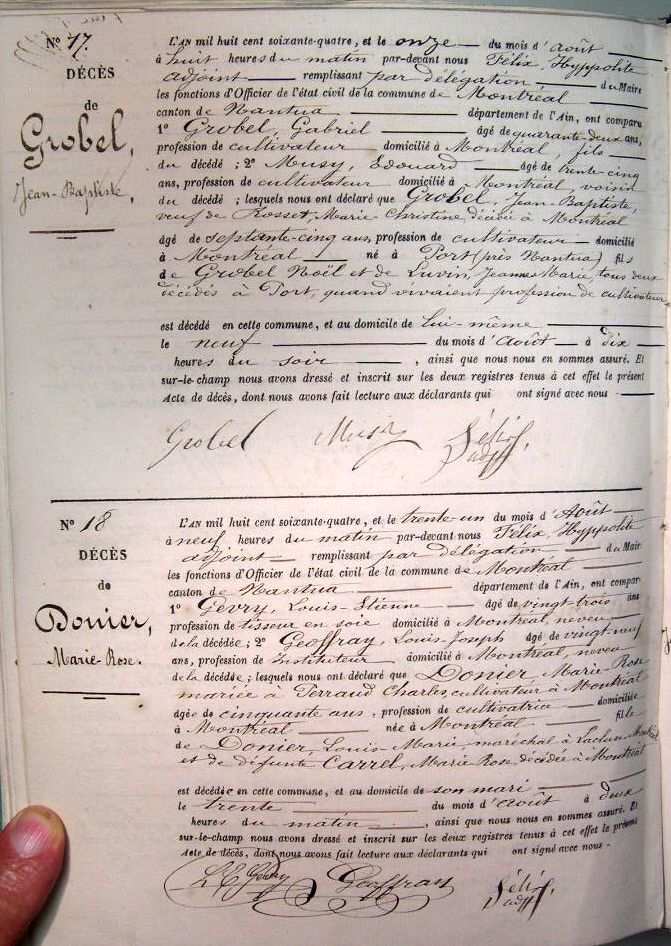 N° 17.
DÉCÈS
de
Grobel,
Jean-Baptiste,
L'AN mil huit cent soixante-quatre, et le onze du mois d'Août
à huit heures du matin par-devant nous Félix, Hyppolite
adjoint remplissant par délégation du Maire
les fonctions d'Officier de l'état civil de la commune de Montréal
canton de Nantua département de l'Ain, ont comparu
1° Grobel, Gabriel âgé de quarante-deux ans,
profession de cultivateur domicilié à Montréal, fils
du décédé ; 2° Musy, Edouard âgé de trente-cinq
ans, profession de cultivateur domicilié à Montréal, voisin
du décédé ; lesquels nous ont déclaré que Grobel, Jean-Baptiste,
veuf de Rosset, Marie-Christine, décédée à Montréal
âgé de septante-cinq ans, profession de cultivateur domicilié
à Montréal né à Port (près Nantua) fils
de Grobel Noël et de Luvin, Jeanne Marie, tous deux
décédés à Port, quand vivaient profession de cultivateurs
est décédé en cette commune, et au domicile de lui-même
le neuf du mois d'Août à dix
heures du soir, ainsi que nous nous en sommes assuré. Et
sur-le-champ nous avons dressé et inscrit sur les deux registres tenus à cet effet le présent
Acte de décès, dont nous avons fait lecture aux déclarants qui ont signé avec nous -
Grobel Musy Félix,
adjt
N° 18
DÉCÈS
de
Donier,
Marie-Rose.
L'AN mil huit cent soixante-quatre, et le trente-un du mois d'Août
à neuf heures du matin par-devant nous Félix, Hyppolite
adjoint remplissant par délégation du Maire
les fonctions d'Officier de l'état civil de la commune de Montréal
canton de Nantua département de l'Ain, ont compar
1° Gevry, Louis-Etienne âgé de vingt-trois ans
profession de tisseur en soie domicilié à Montréal, neveu
de la décédée ; 2° Geoffray, Louis-Joseph âgé de vingt-neuf
ans, profession de Instituteur domicilié à Montréal, neveu
de la décédée ; lesquels nous ont déclaré que Donier, Marie-Rose
mariée à Perraud Charles, cultivateur à Montréal
âgée de cinquante ans, profession de cultivatrice domiciliée
à Montréal née à Montréal fille
de Donier, Louis-Marie, maréchal à
et de défunte Carrel, Marie Rose décédée à Montréal
est décédée en cette commune, et au domicile de son mari
le trente du mois d'Août à deux
heures du matin, ainsi que nous nous en sommes assuré. Et
sur-le-champ nous avons dressé et inscrit sur les deux registres tenus à cet effet le présent
Acte de décès, dont nous avons fait lecture aux déclarants qui ont signé avec nous -
L E Gevry Geoffray Félix
adjt